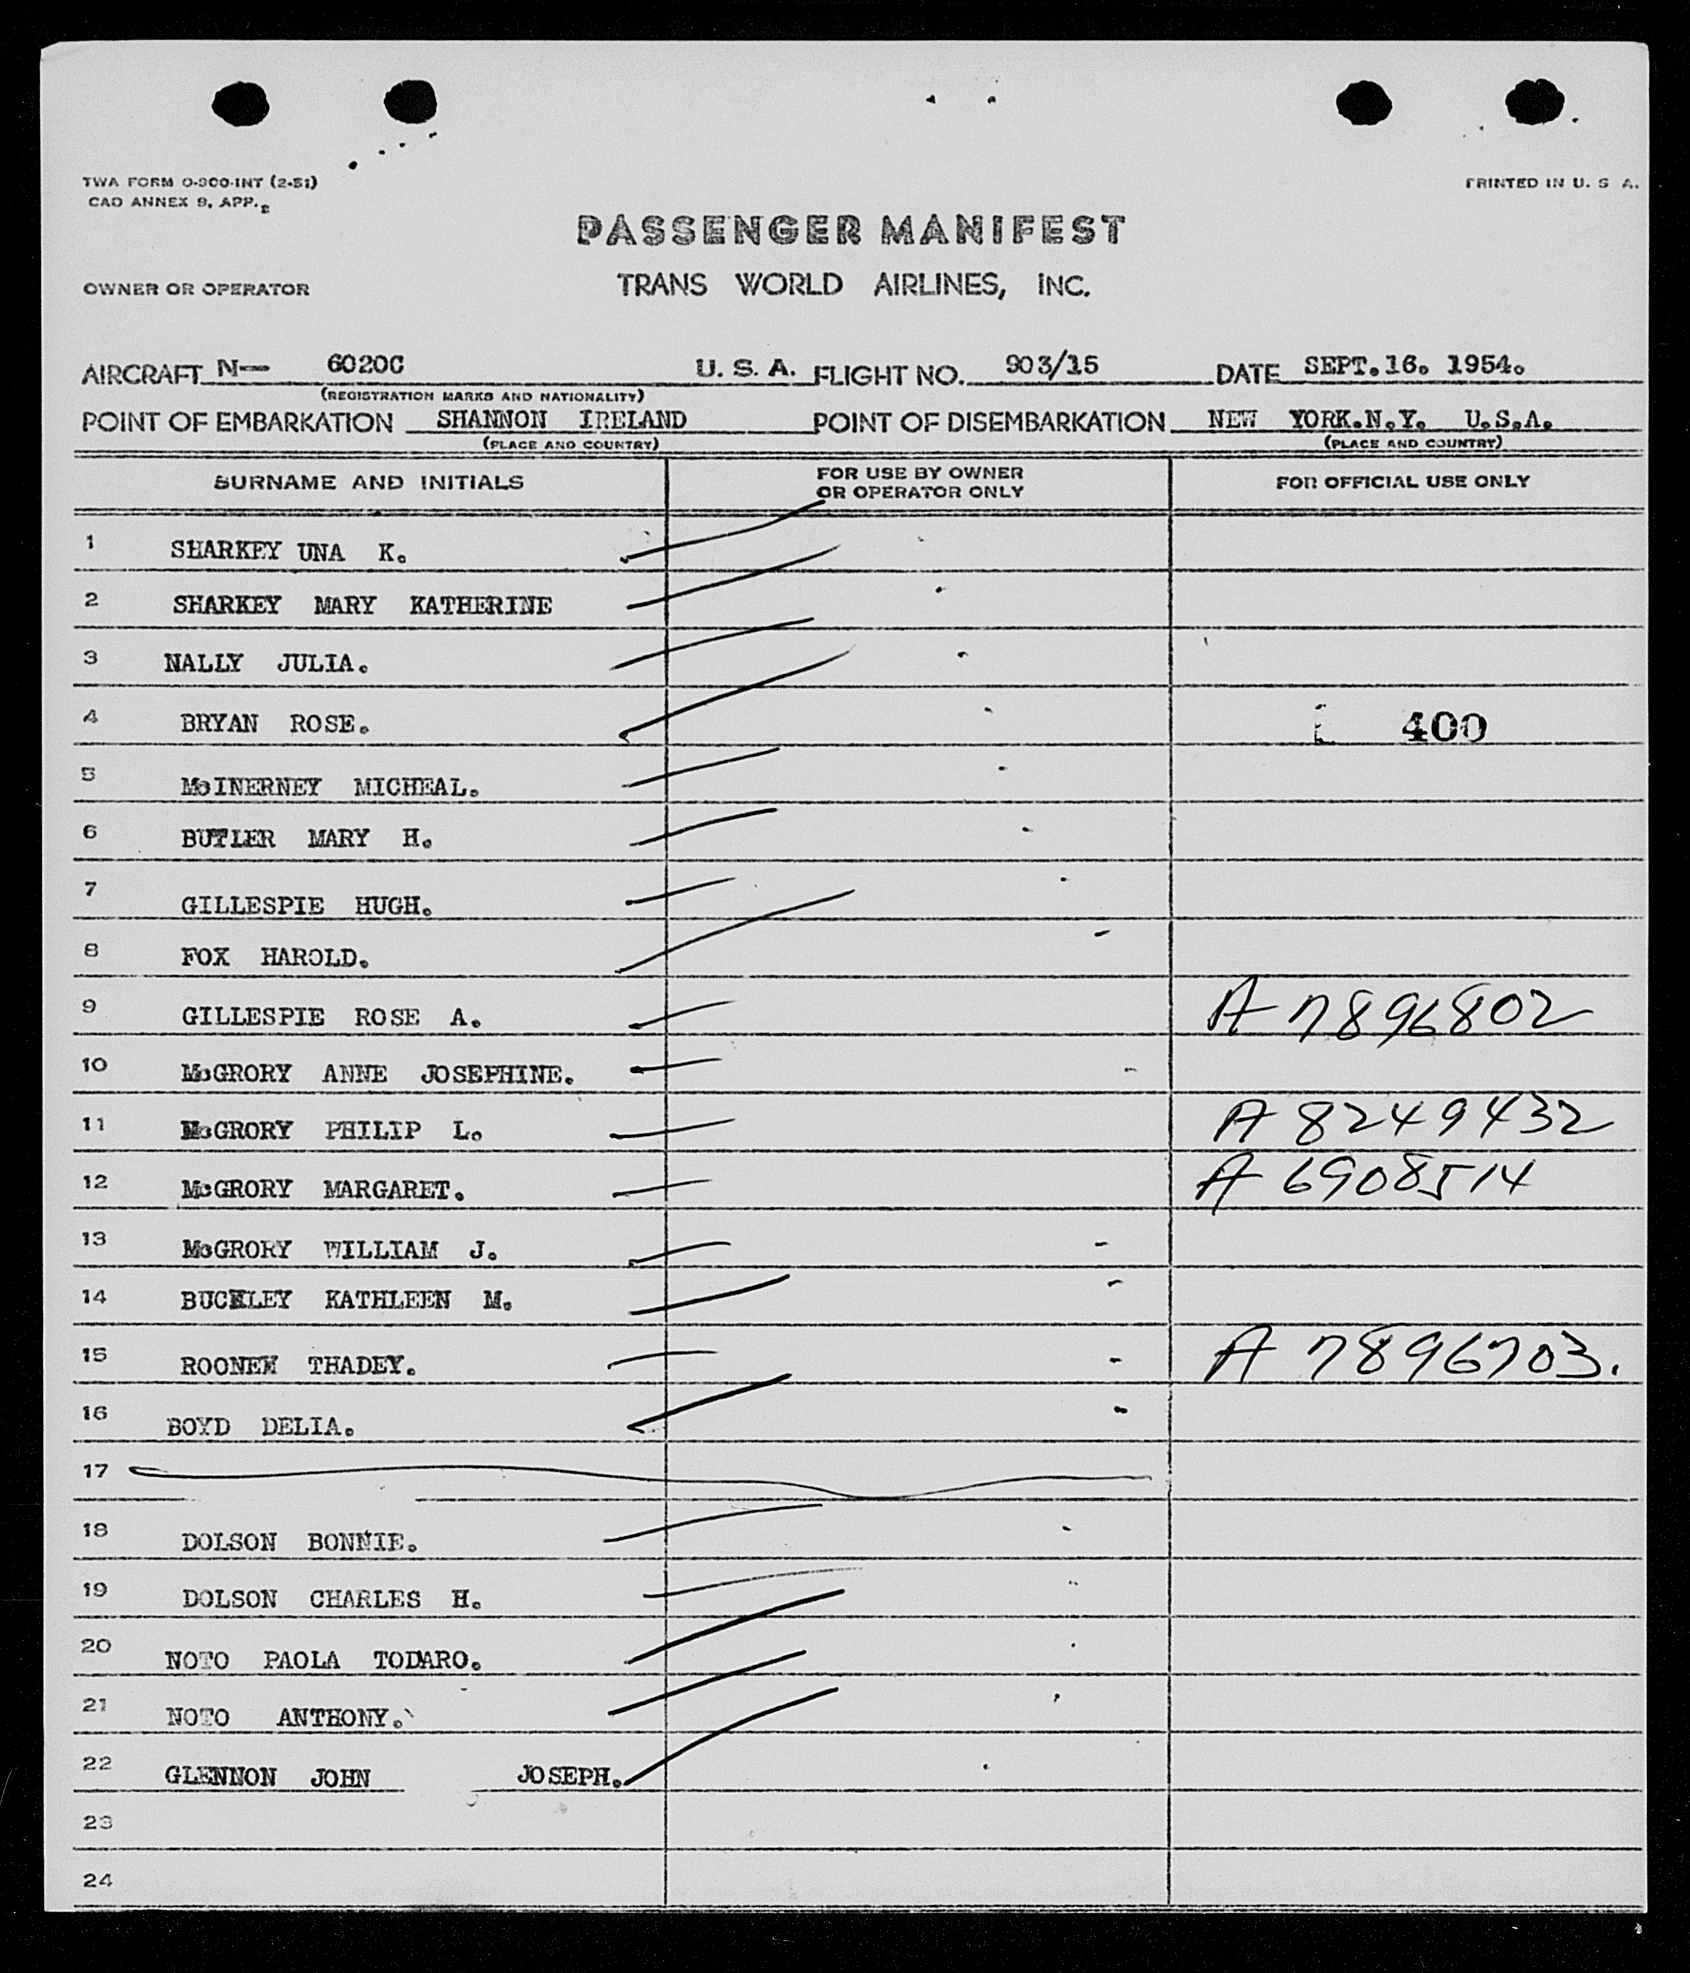 TWA FORM O-900-INT (2-51)
PRINTED IN U. S A.
CAO ANNEX 9, APP. 2
PASSENGER MANIFEST
OWNER OR OPERATOR
TRANS WORLD AIRLINES, INC.
AIRCRAFT N— 6020C U. S. A. FLIGHT NO. 903/15 DATE SEPT.16. 1954.
(REGISTRATION MARKS AND NATIONALITY)
POINT OF EMBARKATION SHANNON IRELAND POINT OF DISEMBARKATION NEW YORK.N.Y. U.S.A.
(PLACE AND COUNTRY) (PLACE AND COUNTRY)
SURNAME AND INITIALS FOR USE BY OWNER OR OPERATOR ONLY FOR OFFICIAL USE ONLY
1 SHARKEY UNA K.
2 SHARKEY MARY KATHERINE
3 NALLY JULIA.
4 BRYAN ROSE. 400
5 McINERNEY MICHEAL.
6 BUTLER MARY H.
7 GILLESPIE HUGH.
8 FOX HAROLD.
9 GILLESPIE ROSE A. A 7896802
10 McGRORY ANNE JOSEPHINE.
11 McGRORY PHILIP L. A 8249432
12 McGRORY MARGARET. A 6908514
13 McGRORY WILLIAM J.
14 BUCKLEY KATHLEEN M.
15 ROONEW THADEY. A 7896703.
16 BOYD DELIA.
17
18 DOLSON BONNIE.
19 DOLSON CHARLES H.
20 NOTO PAOLA TODARO.
21 NOTO ANTHONY.
22 GLENNON JOHN JOSEPH.
23
24